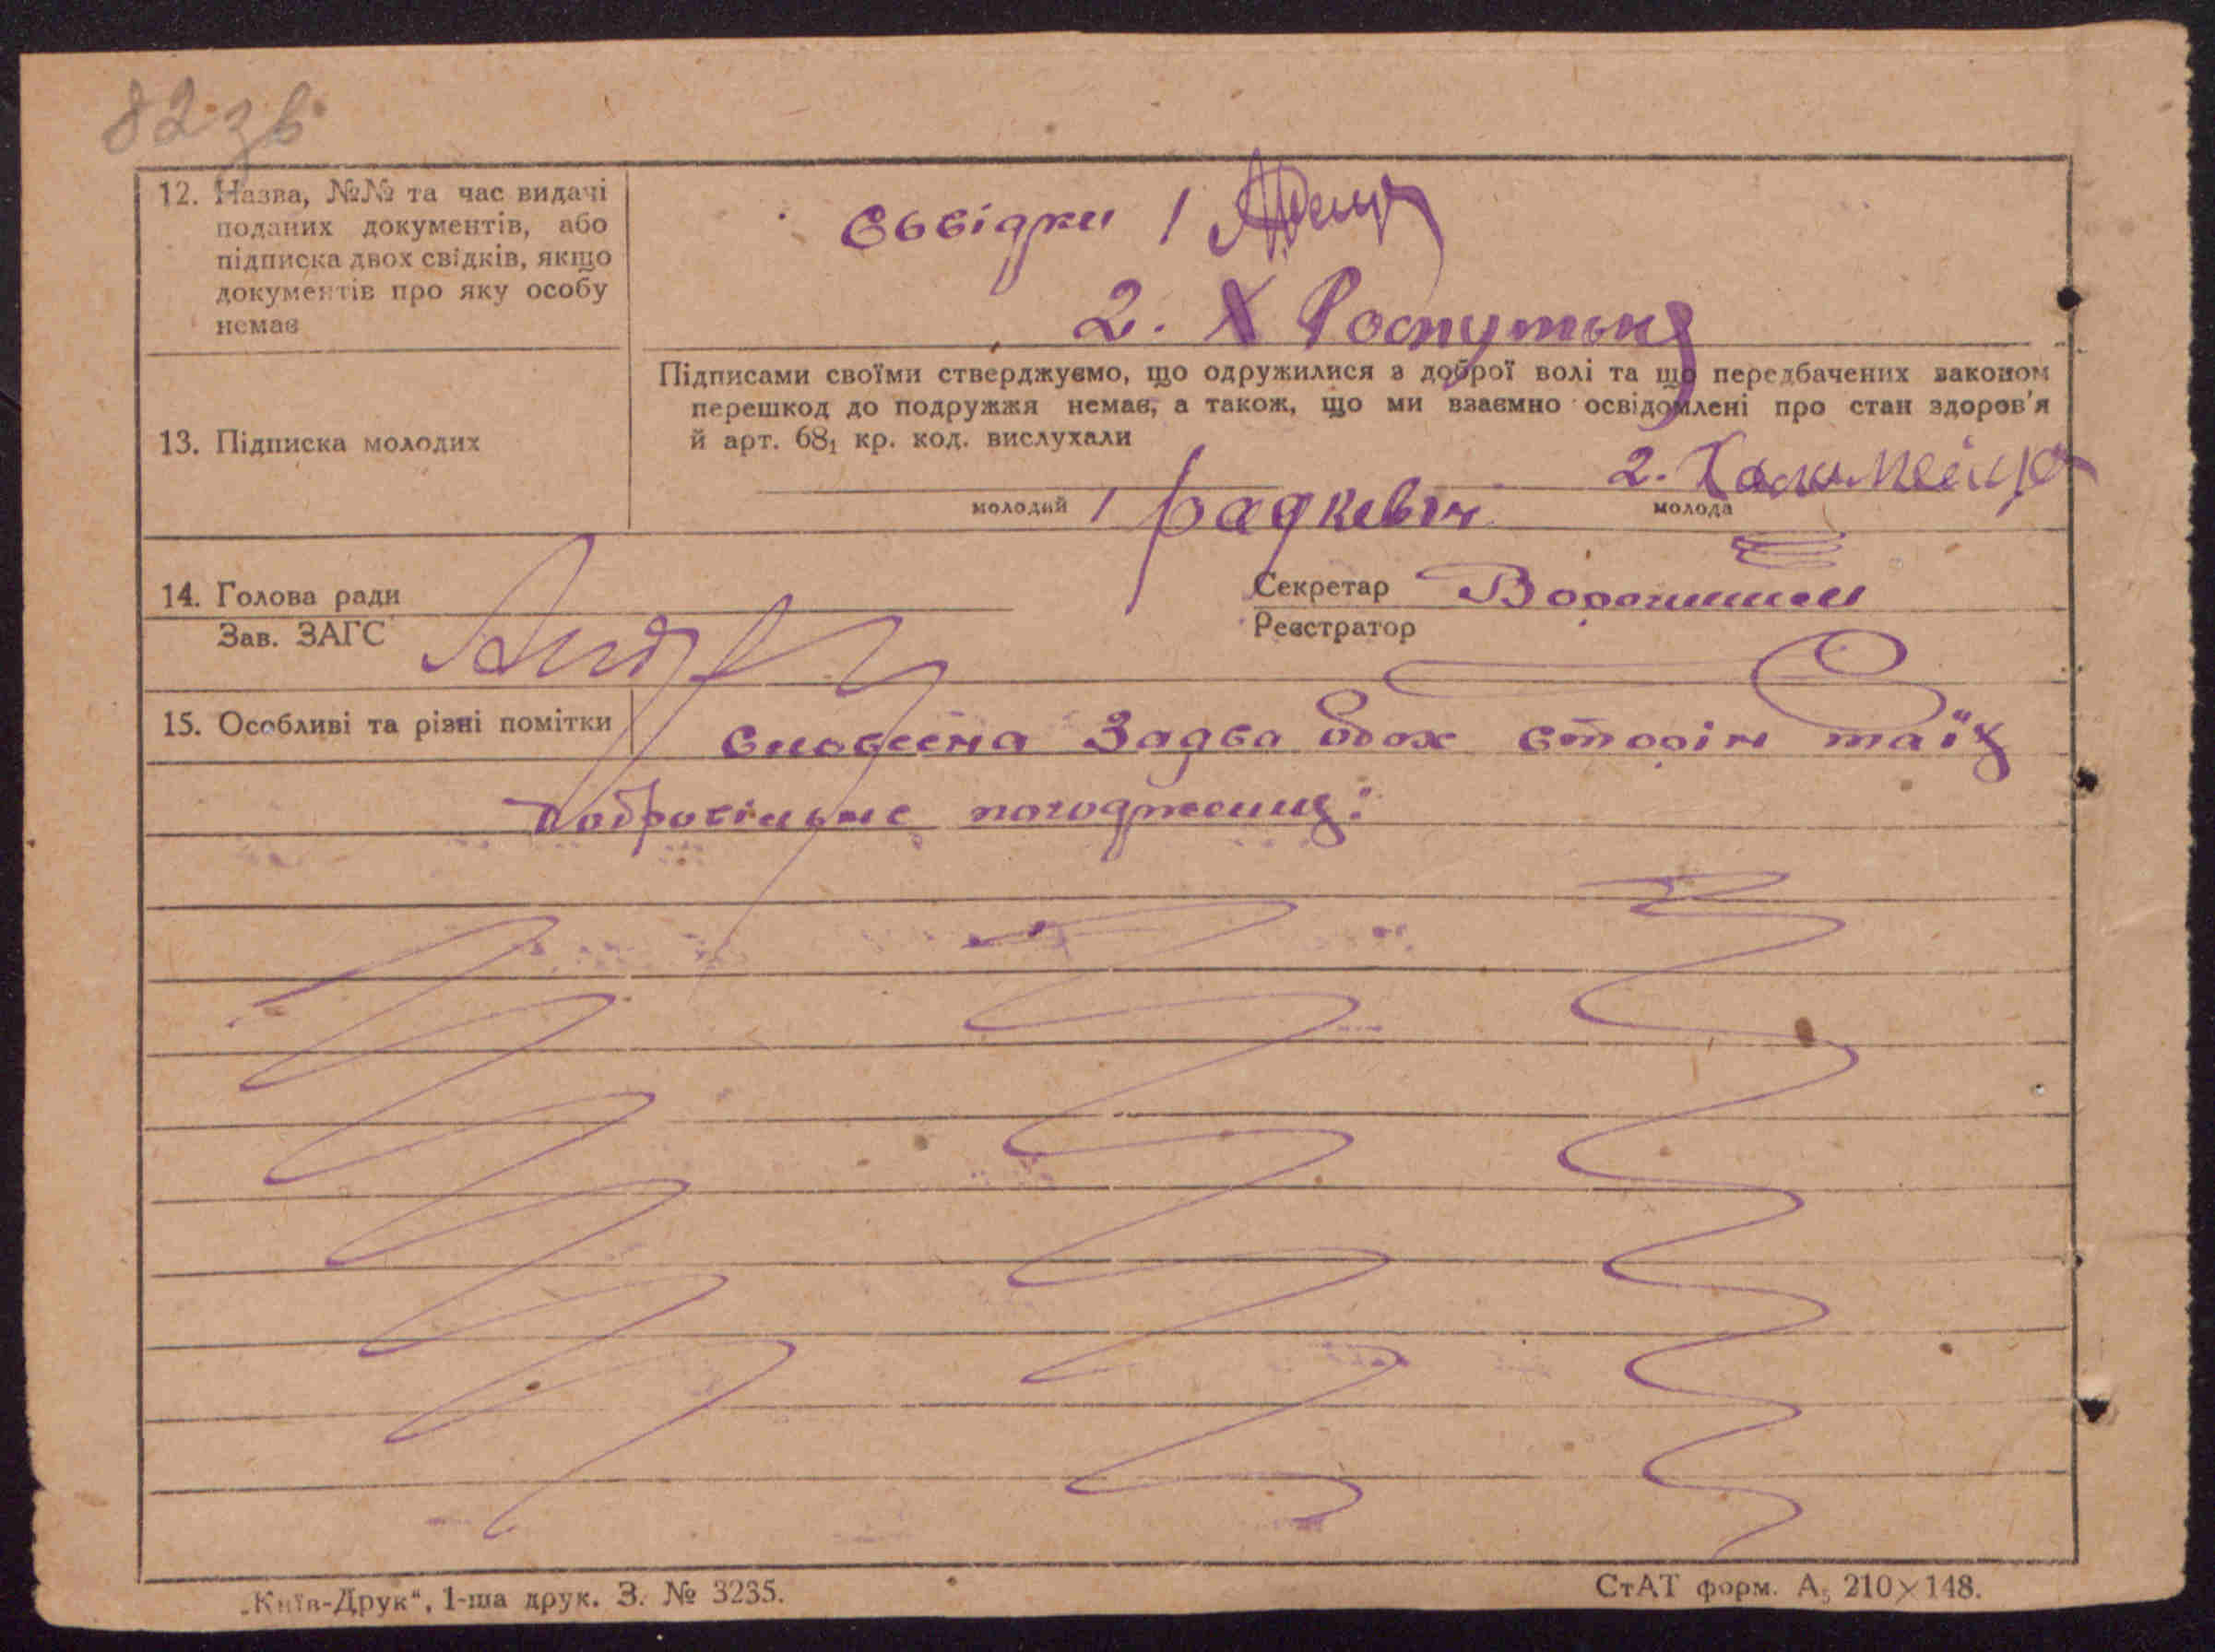 82 зв
12. Назва, №№ та час видачі
поданих документів, або
підписка двох свідків, якщо
документів про яку особу
немає
Свідки 1
2. Х Роспутьня
13. Підписка молодих
Підписами своїми стверджуємо, що одружилися з доброї волі та що передбачених законом
перешкод до подружжя немає, а також, що ми взаємно освідомлені про стан здоров'я
й арт. 68₁ кр. код. вислухали
молодий 1 Радкевич
2.
молода
14. Голова ради
Зав. ЗАГС
Секретар
Реєстратор
15. Особливі та різні помітки
Словесна Задва обох сторін та їх
Добровільне погодження:
„Київ-Друк“, 1-ша друк. З. № 3235.
СтАТ форм. А₅ 210×148.